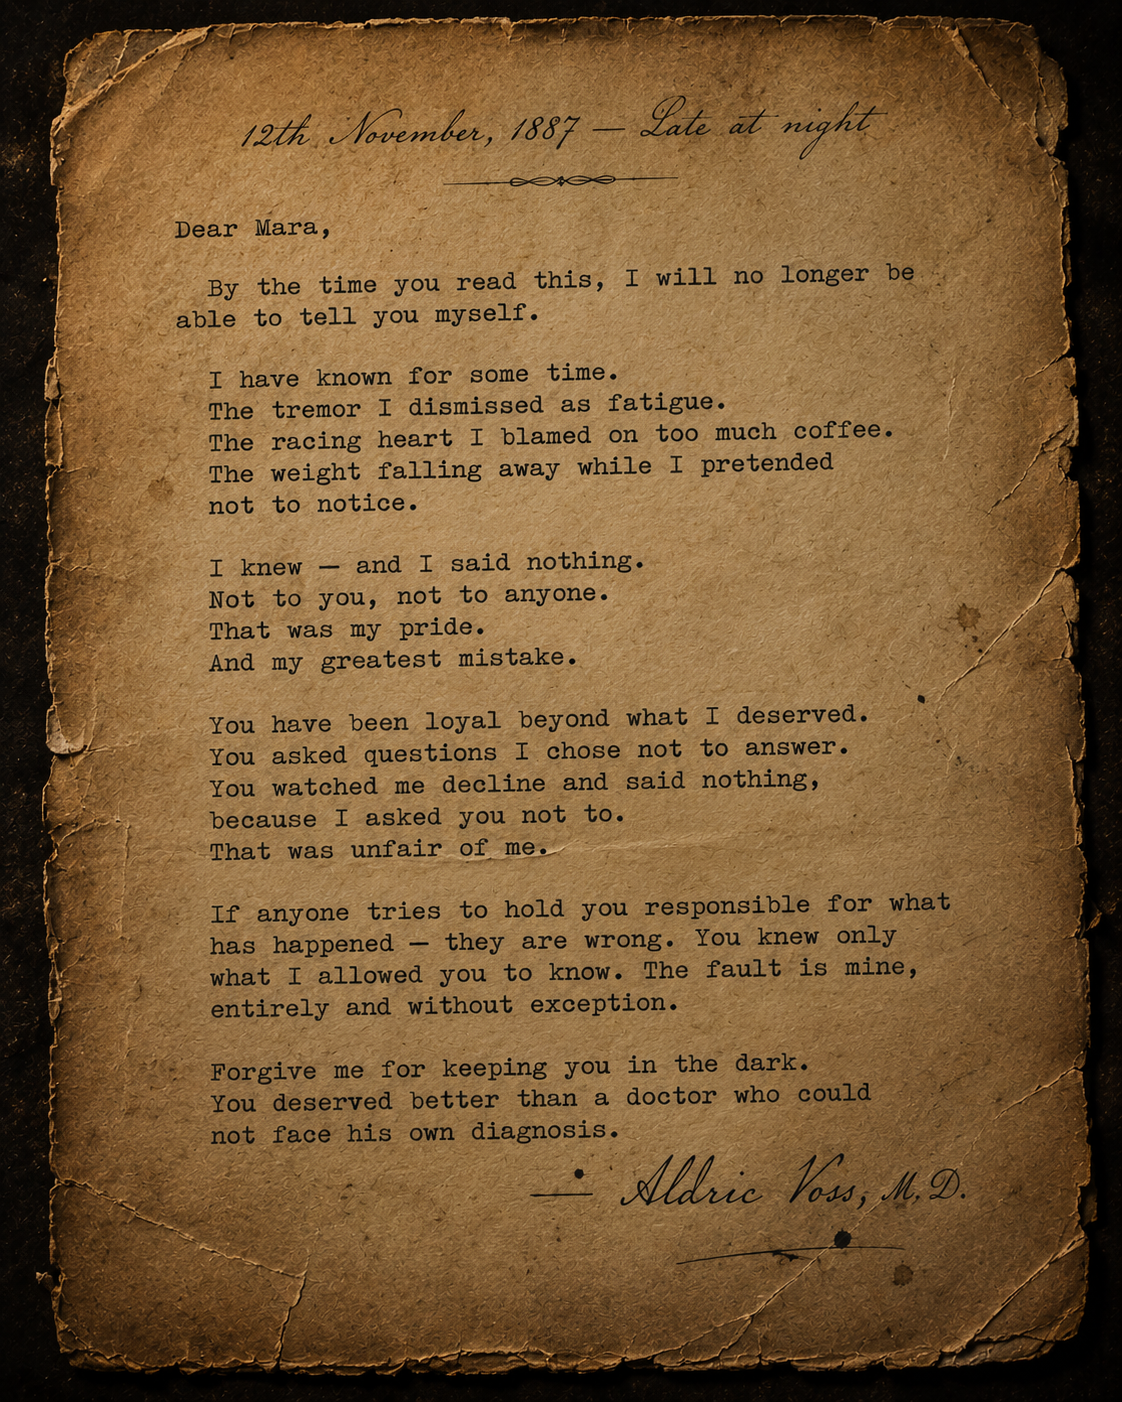 12th November, 1887 — Late at night
Dear Mara,
By the time you read this, I will no longer be
able to tell you myself.
I have known for some time.
The tremor I dismissed as fatigue.
The racing heart I blamed on too much coffee.
The weight falling away while I pretended
not to notice.
I knew — and I said nothing.
Not to you, not to anyone.
That was my pride.
And my greatest mistake.
You have been loyal beyond what I deserved.
You asked questions I chose not to answer.
You watched me decline and said nothing,
because I asked you not to.
That was unfair of me.
If anyone tries to hold you responsible for what
has happened — they are wrong. You knew only
what I allowed you to know. The fault is mine,
entirely and without exception.
Forgive me for keeping you in the dark.
You deserved better than a doctor who could
not face his own diagnosis.
— Aldric Voss, M.D.